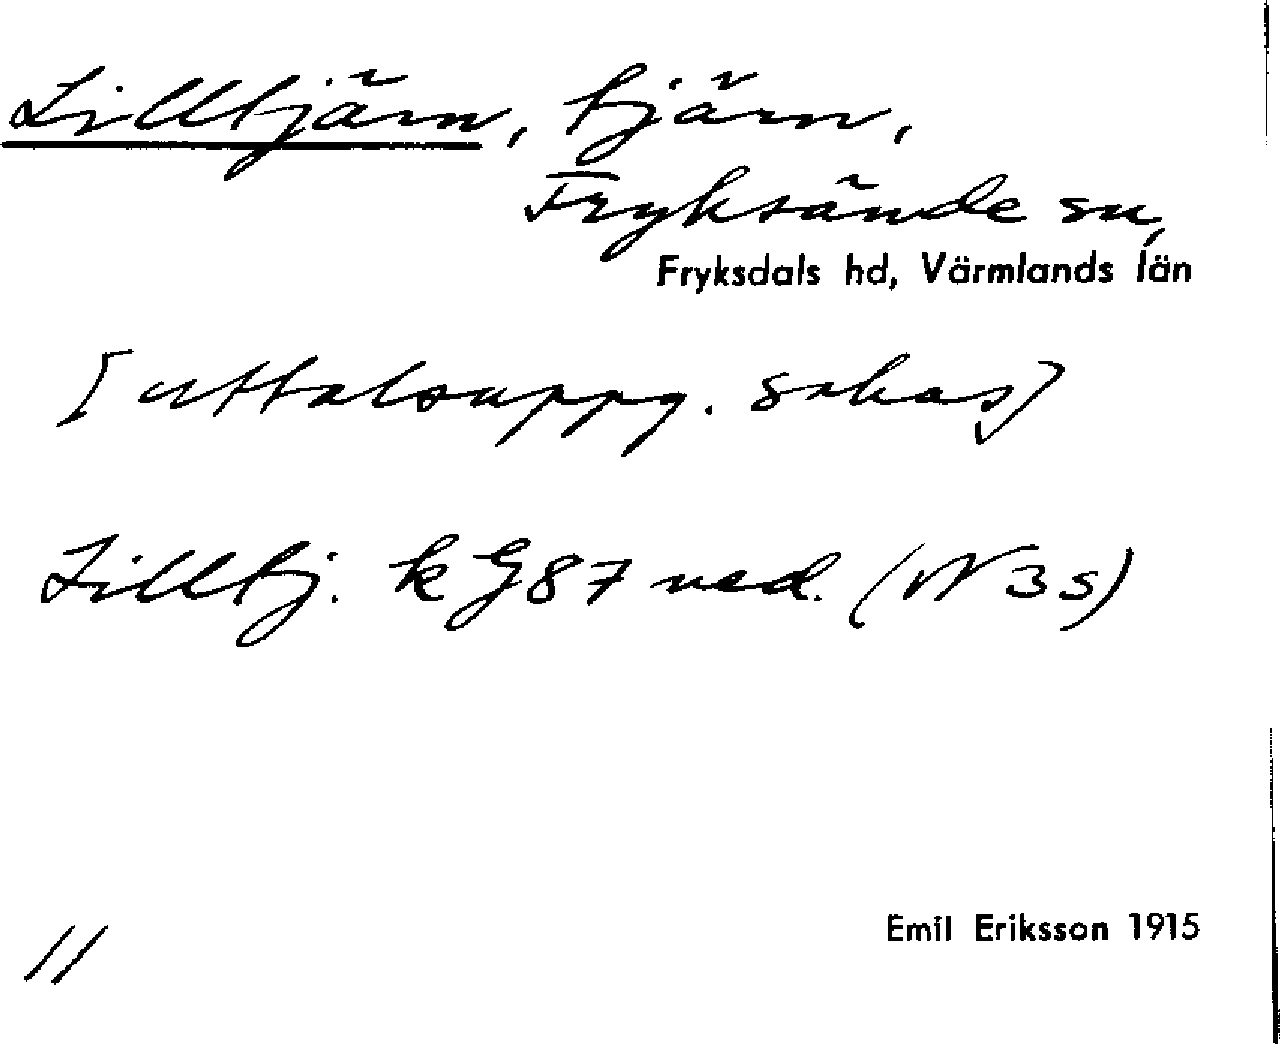 Lilltjärn, tjärn,
Fryksände sn,
Fryksdals hd, Värmlands län
[uttalsuppg. saknas]
Lilltj. k G87 ned. (
Emil Eriksson 1915
11